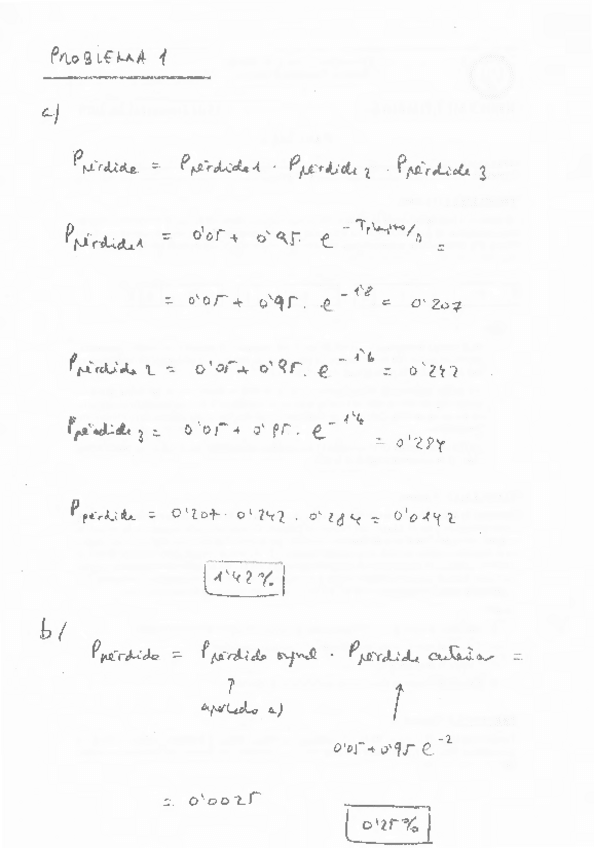 PROBLEMA 1
a)
Ppérdida = Ppérdida1 · Ppérdida 2 · Ppérdida 3
Ppérdida1 = 0'05 + 0'95 · e^-Tplayout/D =
= 0'05 + 0'95 · e^-1'8 = 0'207
Ppérdida 2 = 0'05 + 0'95 · e^-1'6 = 0'242
Ppérdida 3 = 0'05 + 0'95 · e^-1'4 = 0'284
Ppérdida = 0'207 · 0'242 · 0'284 = 0'0142
1'42%
b/
Ppérdida = Ppérdida · Ppérdida =
apartado a)
0'05 + 0'95 e^-2
= 0'0025
0'25%